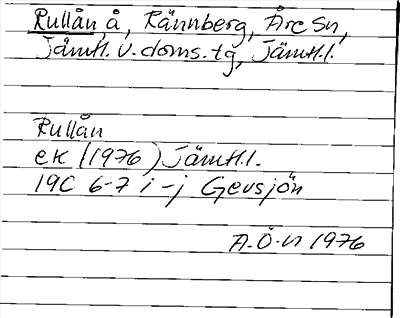 Rullån, å, Rännberg, Åre Sn,
Jämtl. v. doms. tg, Jämtl.l.
Rullån
ek (1976) Jämtl.l.
19C 6-7 i-j Gevsjön
A.Ö-n 1976